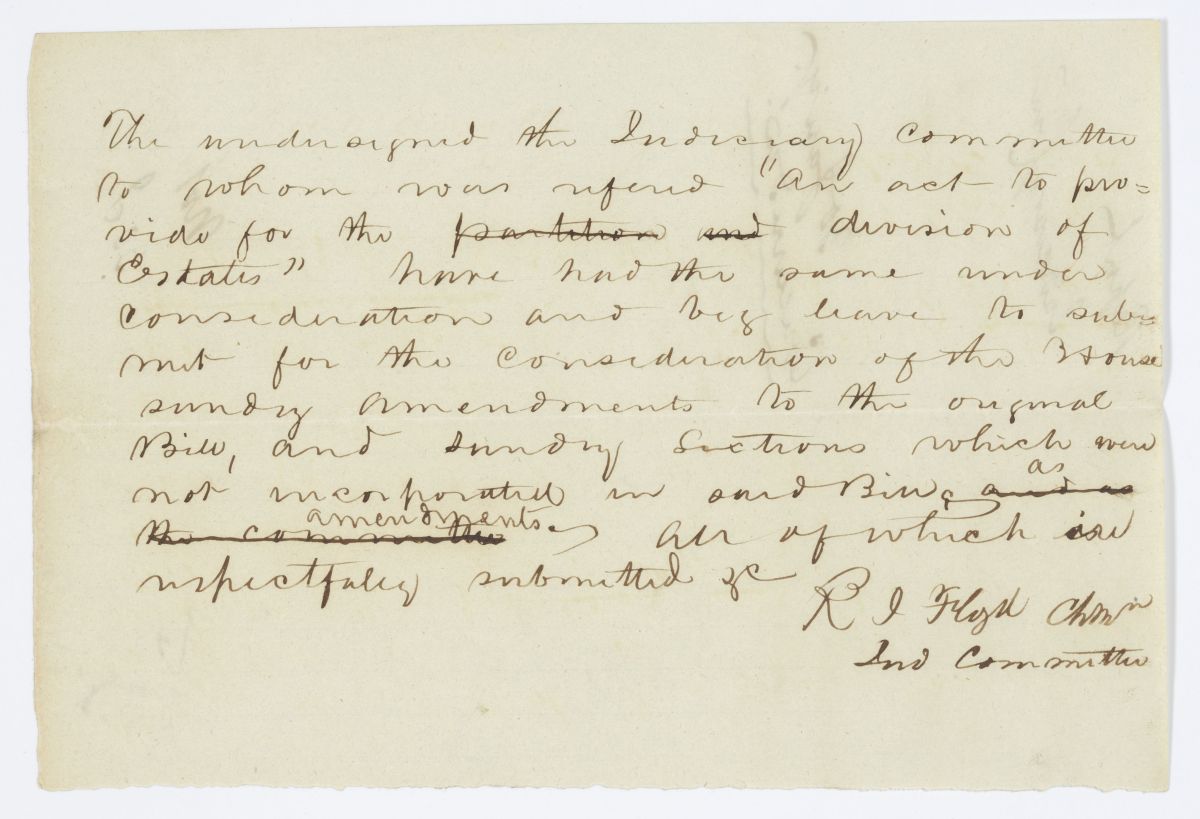 The undersigned the Judiciary Committee
to whom was refered "An act to pro=
vide for the partition and division of
Estates" have had the same under
consideration and beg leave to sub=
mit for the consideration of the House
sundry amendments to the original
Bill, and sundry Sections which were
not incorporated in said Bill, and as
as
the committee
amendments. All of which is
respectfully submitted &c
R J Floyd Chmn
Jud Committee